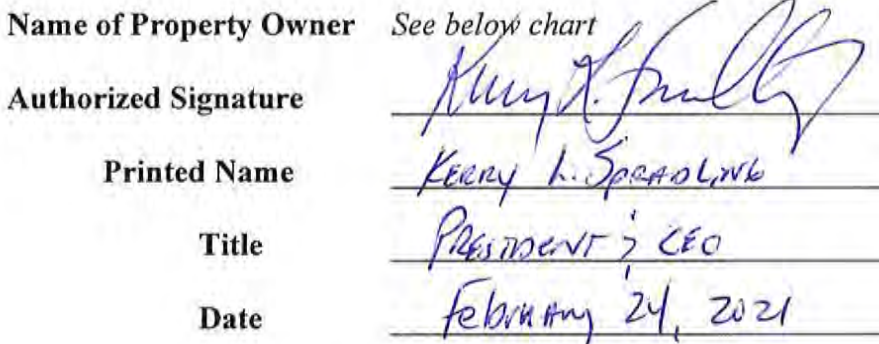 Name of Property Owner See below chart
Authorized Signature Kerry L. Spradling
Printed Name KERRY L. SPRADLING
Title PRESIDENT & CEO
Date February 24, 2021